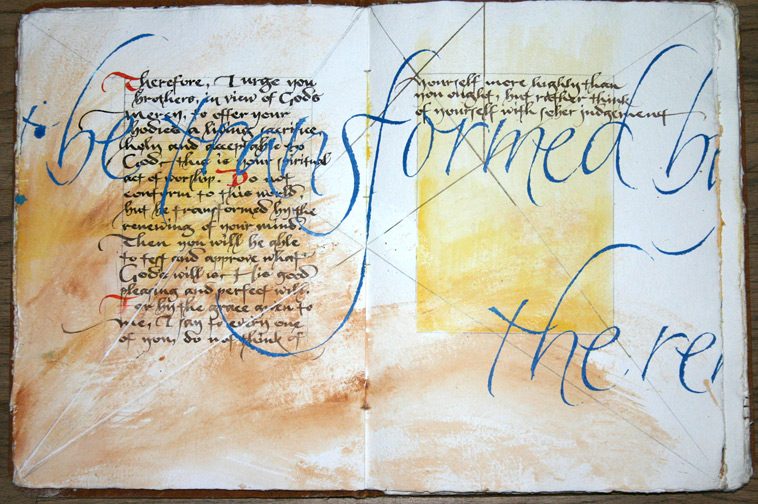 Therefore, I urge you
brothers, in view of God's
mercy, to offer your
bodies a living sacrifice
holy and acceptable to
God – this is your spiritual
act of worship. Do not
conform to this world
but be transformed by the
renewing of your mind.
Then you will be able
to test and approve what
God's will is his good
pleasing and perfect will.
For by the grace given to
me, I say to every one
of you, do not think of
yourself more highly than
you ought, but rather think
of yourself with sober judgement
be transformed
the